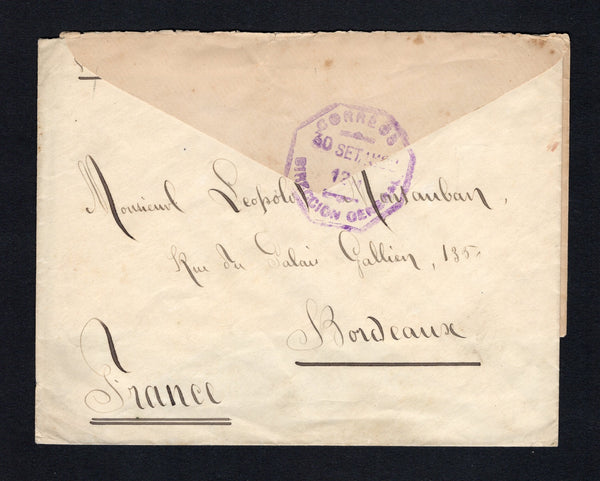 CORREOS
30 SET.
12
DIRECCION GENERAL
Monsieur Leopold Montauban,
Rue du Palais Gallien, 135
Bordeaux
France